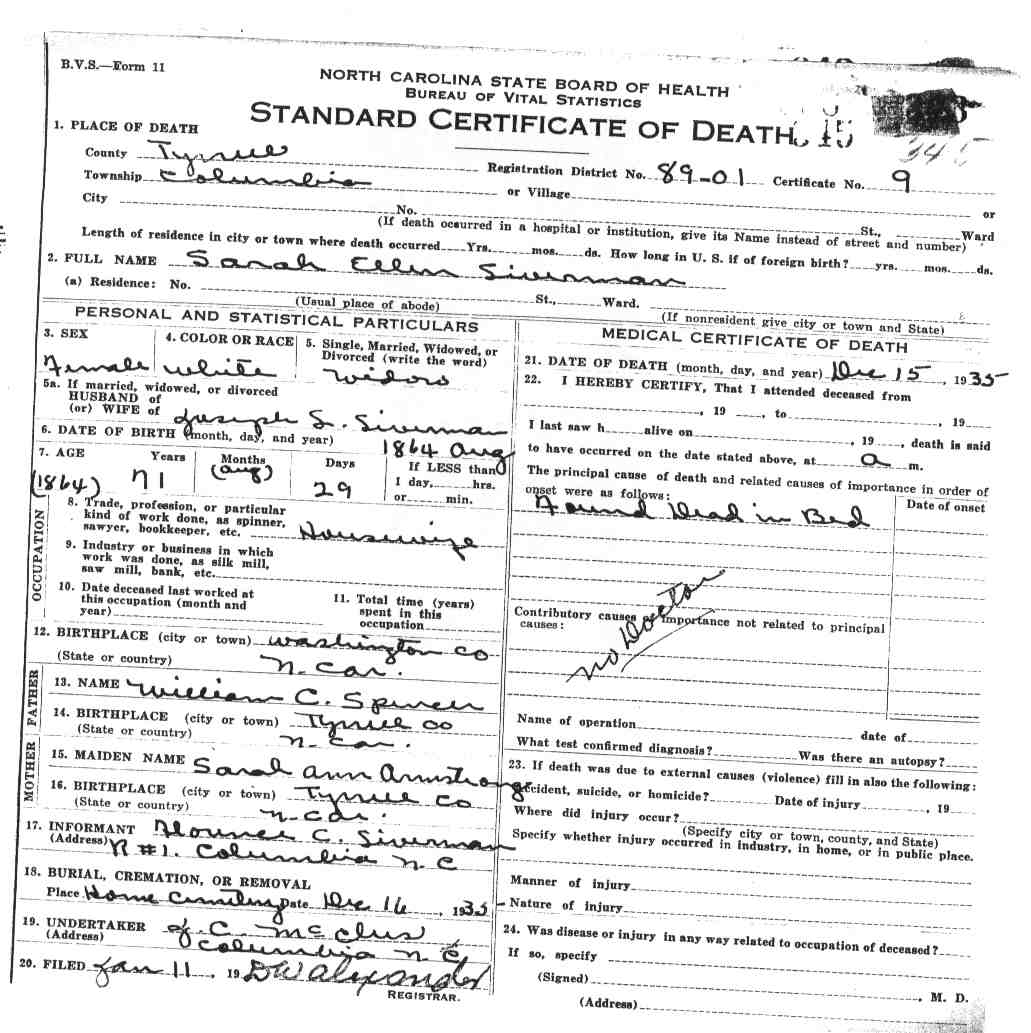 B.V.S.—Form 11
NORTH CAROLINA STATE BOARD OF HEALTH
BUREAU OF VITAL STATISTICS
STANDARD CERTIFICATE OF DEATH
345
1. PLACE OF DEATH
County Tyrrell Registration District No. 89-01 Certificate No. 9
Township Columbia or Village or
City No. St., Ward
(If death occurred in a hospital or institution, give its Name instead of street and number)
Length of residence in city or town where death occurred Yrs. mos. ds. How long in U. S. if of foreign birth? yrs. mos. ds.
2. FULL NAME Sarah Ellen Siverman
(a) Residence: No. St., Ward.
(Usual place of abode) (If nonresident give city or town and State)
PERSONAL AND STATISTICAL PARTICULARS
3. SEX 4. COLOR OR RACE 5. Single, Married, Widowed, or
Divorced (write the word)
Female White Widow
5a. If married, widowed, or divorced
HUSBAND of
(or) WIFE of Joseph S. Siverman
6. DATE OF BIRTH (month, day, and year) 1864 Aug
7. AGE Years Months Days If LESS than
(1864) 71 (Aug) 29 1 day, hrs.
or min.
OCCUPATION
8. Trade, profession, or particular
kind of work done, as spinner,
sawyer, bookkeeper, etc. Housewife
9. Industry or business in which
work was done, as silk mill,
saw mill, bank, etc.
10. Date deceased last worked at
this occupation (month and
year)
11. Total time (years)
spent in this
occupation
12. BIRTHPLACE (city or town) Washington Co
(State or country) N. Car.
FATHER
13. NAME William C. Spencer
14. BIRTHPLACE (city or town) Tyrrell Co
(State or country) N. Car.
MOTHER
15. MAIDEN NAME Sarah Ann Armstrong
16. BIRTHPLACE (city or town) Tyrrell Co
(State or country) N. Car.
17. INFORMANT Florence C. Siverman
(Address) R #1. Columbia N C
18. BURIAL, CREMATION, OR REMOVAL
Place Home Cemetery Date Dec 16, 1935
19. UNDERTAKER J. C. McClus
(Address) Columbia N C
20. FILED Jan 11, 19 D W Alexander
REGISTRAR.
MEDICAL CERTIFICATE OF DEATH
21. DATE OF DEATH (month, day, and year) Dec 15, 1935
22. I HEREBY CERTIFY, That I attended deceased from
, 19 , to , 19
I last saw h alive on , 19 , death is said
to have occurred on the date stated above, at a m.
The principal cause of death and related causes of importance in order of
onset were as follows: Date of onset
Found Dead in Bed
Contributory causes of importance not related to principal
causes:
No Doctor
Name of operation date of
What test confirmed diagnosis? Was there an autopsy?
23. If death was due to external causes (violence) fill in also the following:
Accident, suicide, or homicide? Date of injury , 19
Where did injury occur?
(Specify city or town, county, and State)
Specify whether injury occurred in industry, in home, or in public place.
Manner of injury
Nature of injury
24. Was disease or injury in any way related to occupation of deceased?
If so, specify
(Signed) , M. D.
(Address)